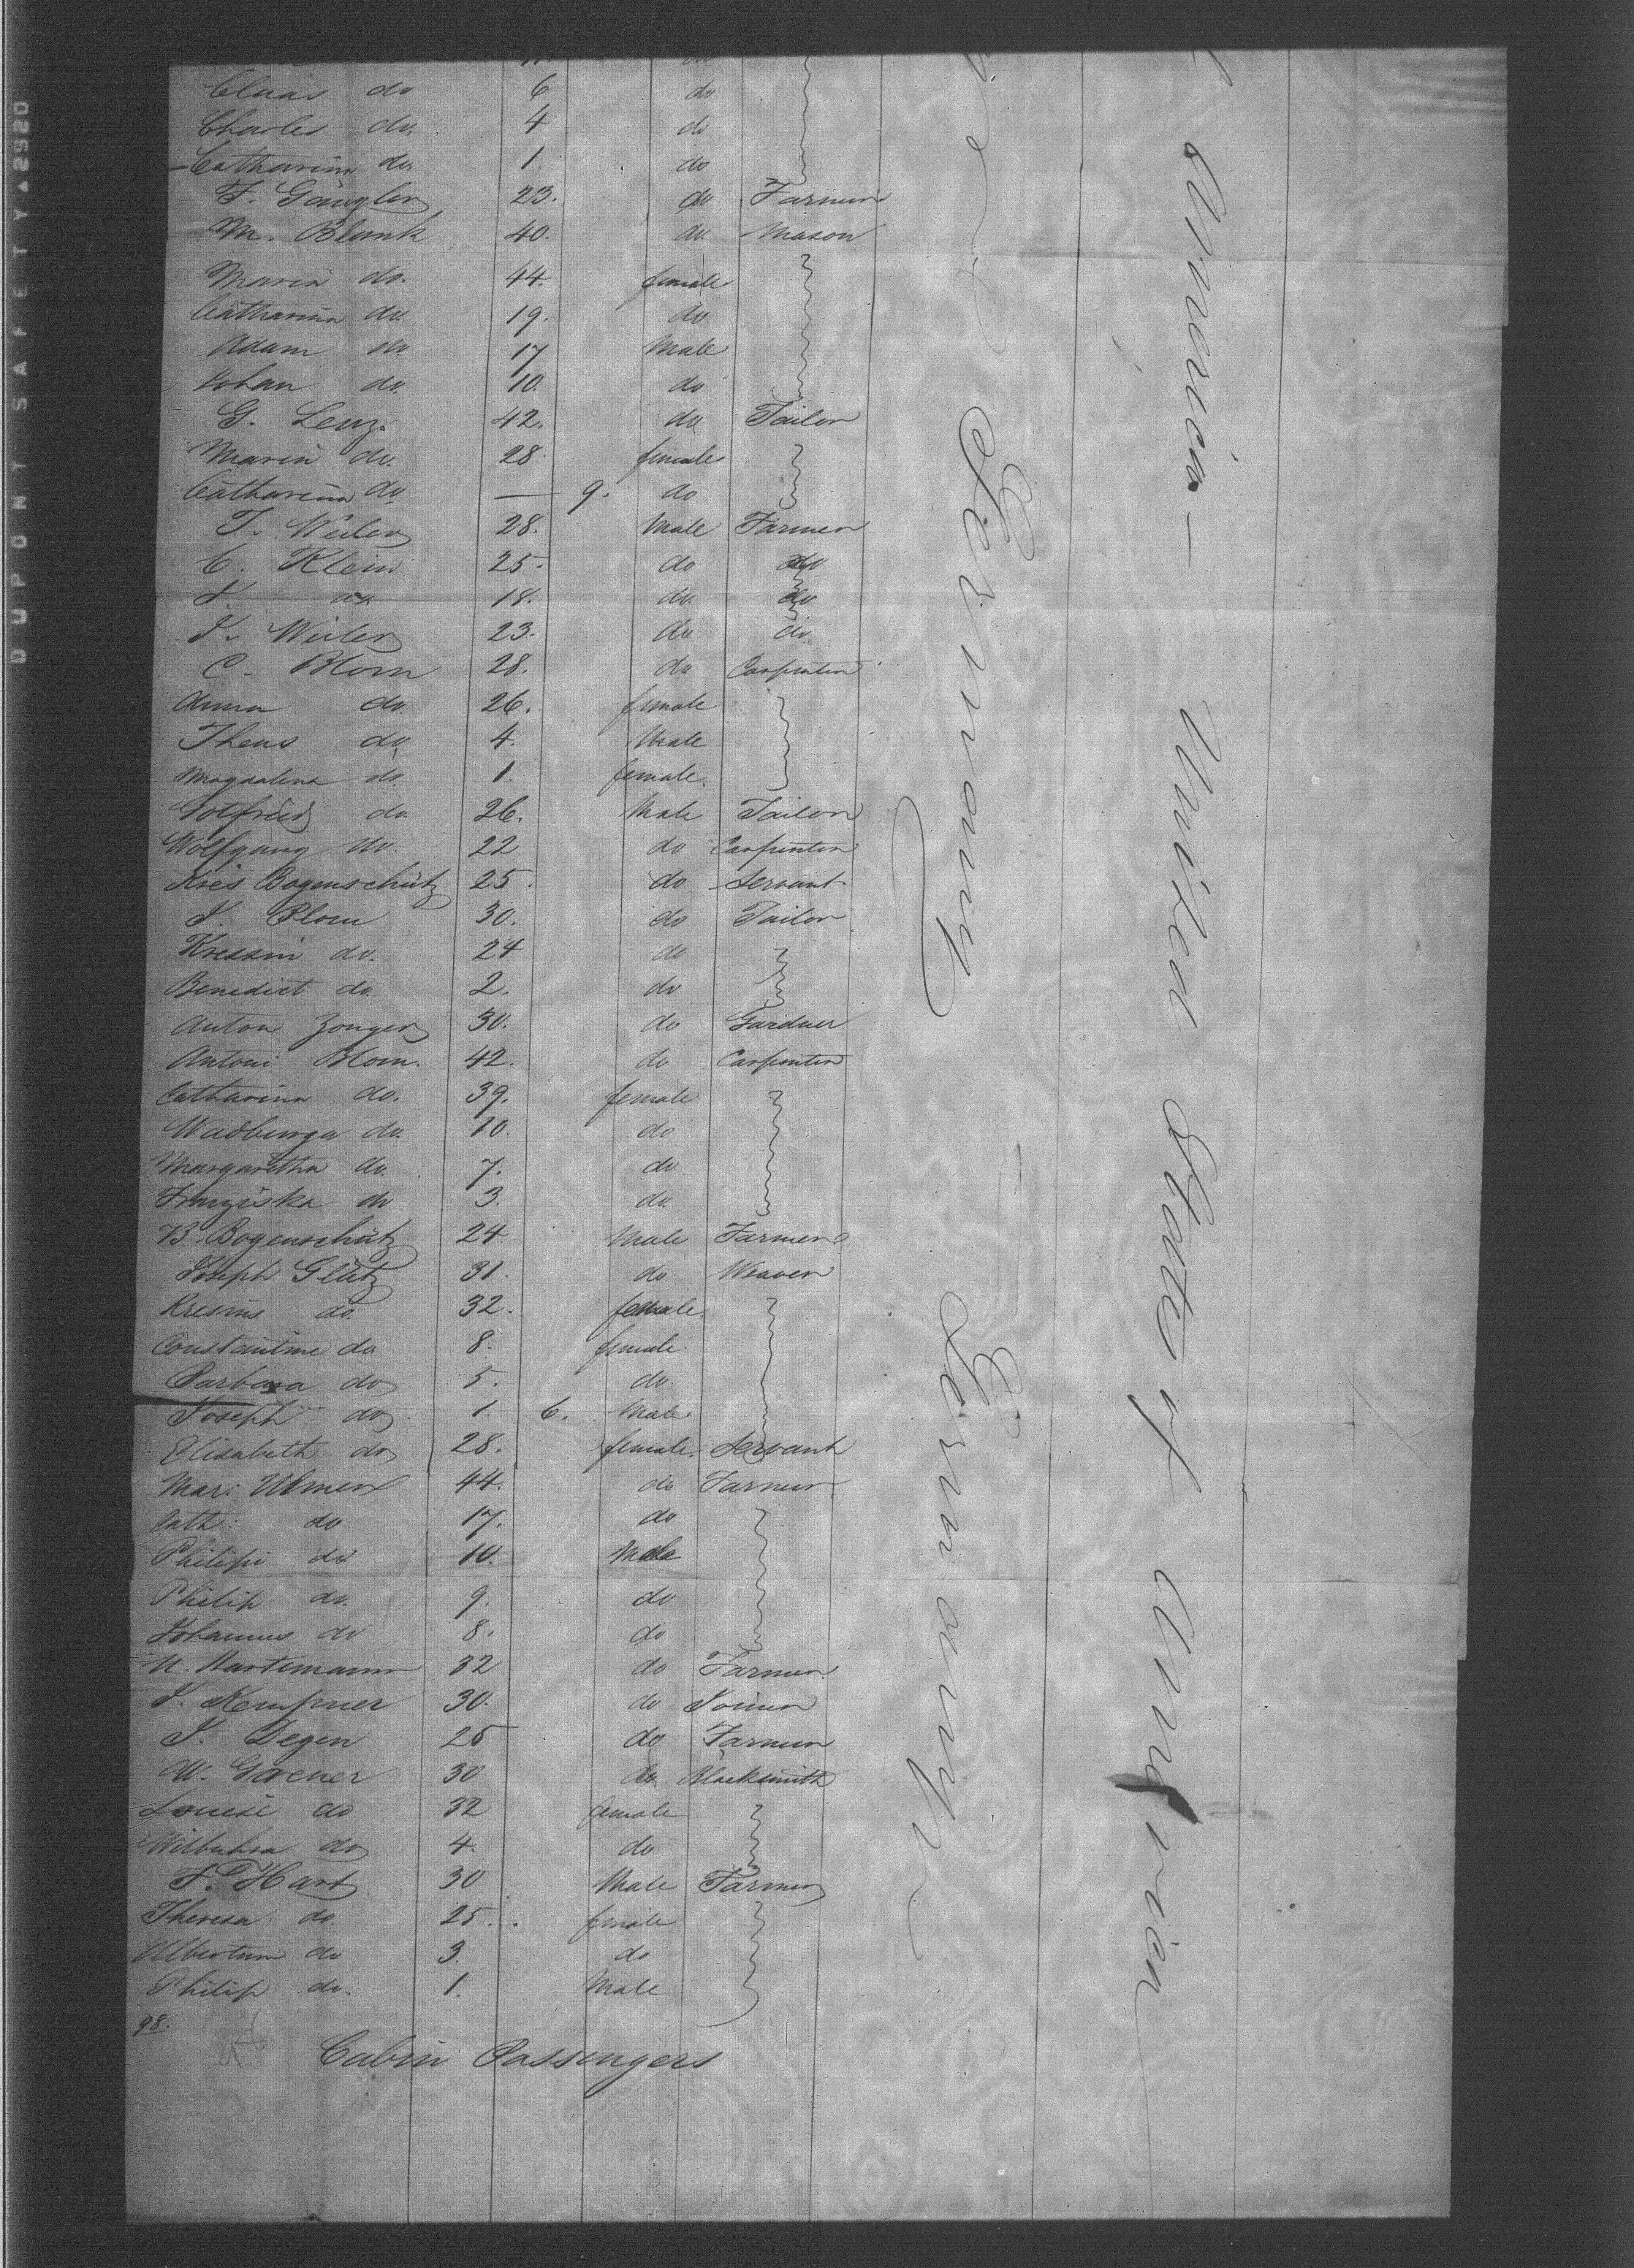 Claas do 6 do
Charles do. 4 do
Catharina do. 1. do
F. Gängler 23. do Farmer
M. Blank 40. do. Mason
Maria do. 44. female
Catharina do. 19. do
Adam do. 17 Male
Johan do. 10. do
G. Lenz. 42. do Tailor
Maria do. 28. female
Catharina do — 9. do
J. Weiler 28. Male Farmer
C. Klein 25. do do
J. do 18. do. do
J. Weiler 23. do do.
C. Blom 28. do Carpenter
Anna do. 26. female
Theus do 4. Male
Magdalena do. 1. female.
Gotfried do. 26. Male Tailor
Wolfgang do. 22 do Carpenter
Kres Bogenschütz 25. do Servant
J. Blom 30. do Tailor
Kressin do. 24 do
Benedict do. 2. do
Anton Zonger 30. do Gardner
Antoni Blom. 42. do Carpenter
Catharina do. 39. female
Wadburga do. 10. do
Margaretha do. 7. do
Franziska do 3. do.
B. Bogenschütz 24 Male Farmer
Joseph Glütz 31. do Weaver
Kresins do. 32. female.
Constantine do 8. female.
Barbara do 5. do
Joseph do 1. 6. Male
Elisabeth do 28. female. Servant
Mar: Ulmer 44. do Farmer
Cath: do 17. do
Philipi do 10. Male
Philip do. 9. do
Johannes do 8. do
N. Hartemann 32 do Farmer
J. Kempner 30. do Joiner
J. Degen 25 do Farmer
W. Goerner 30 do Blacksmith
Louise do 32 female
do 4. do
F. Hart 30 Male Farmer
Theresa do. 25. female
do 3. do
Philip do. 1. Male
98.
98
Cabin Passengers
Germany
Germany
America —
United States of America
DUPONT SAFETY ▲2920